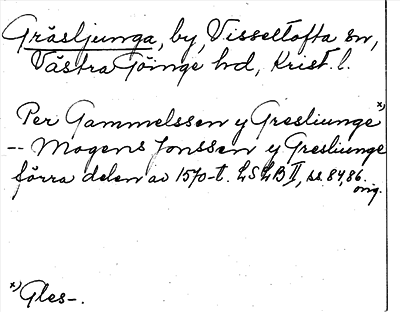 Gräsljunga, by, Visseltofta sn,
Västra Göinge hd, Krist. l.
Per Gammelssen y Gresliunge *)
-- Mogens Jonssen y Gresliunge
förra delen av 1570-t. LSLB II, ss. 84, 86.
orig.
*) Gles-.